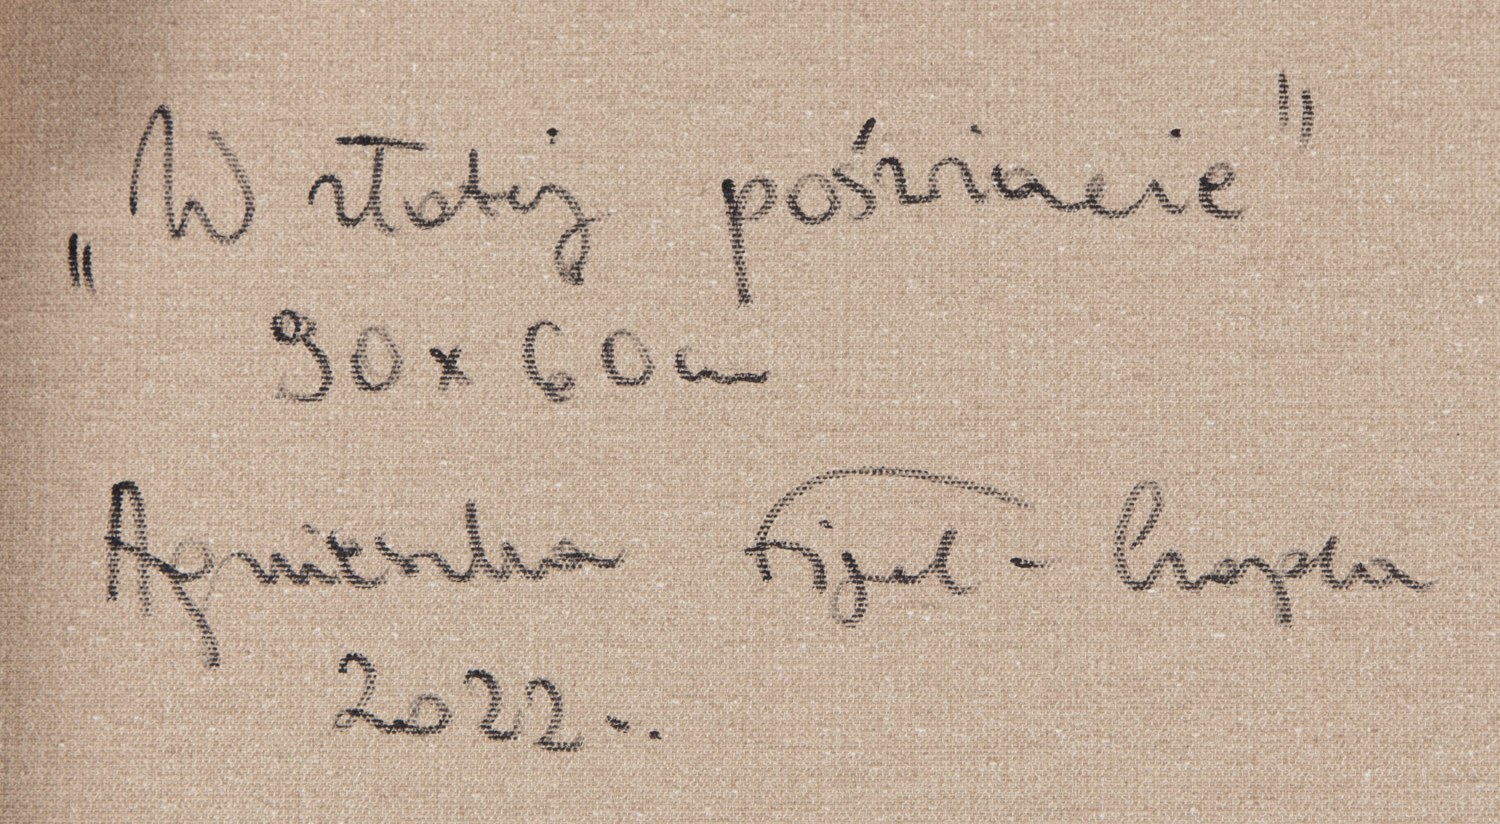 „W złotej poświacie"
90 x 60 cm
Agnieszka Fijał - Czapla
2022